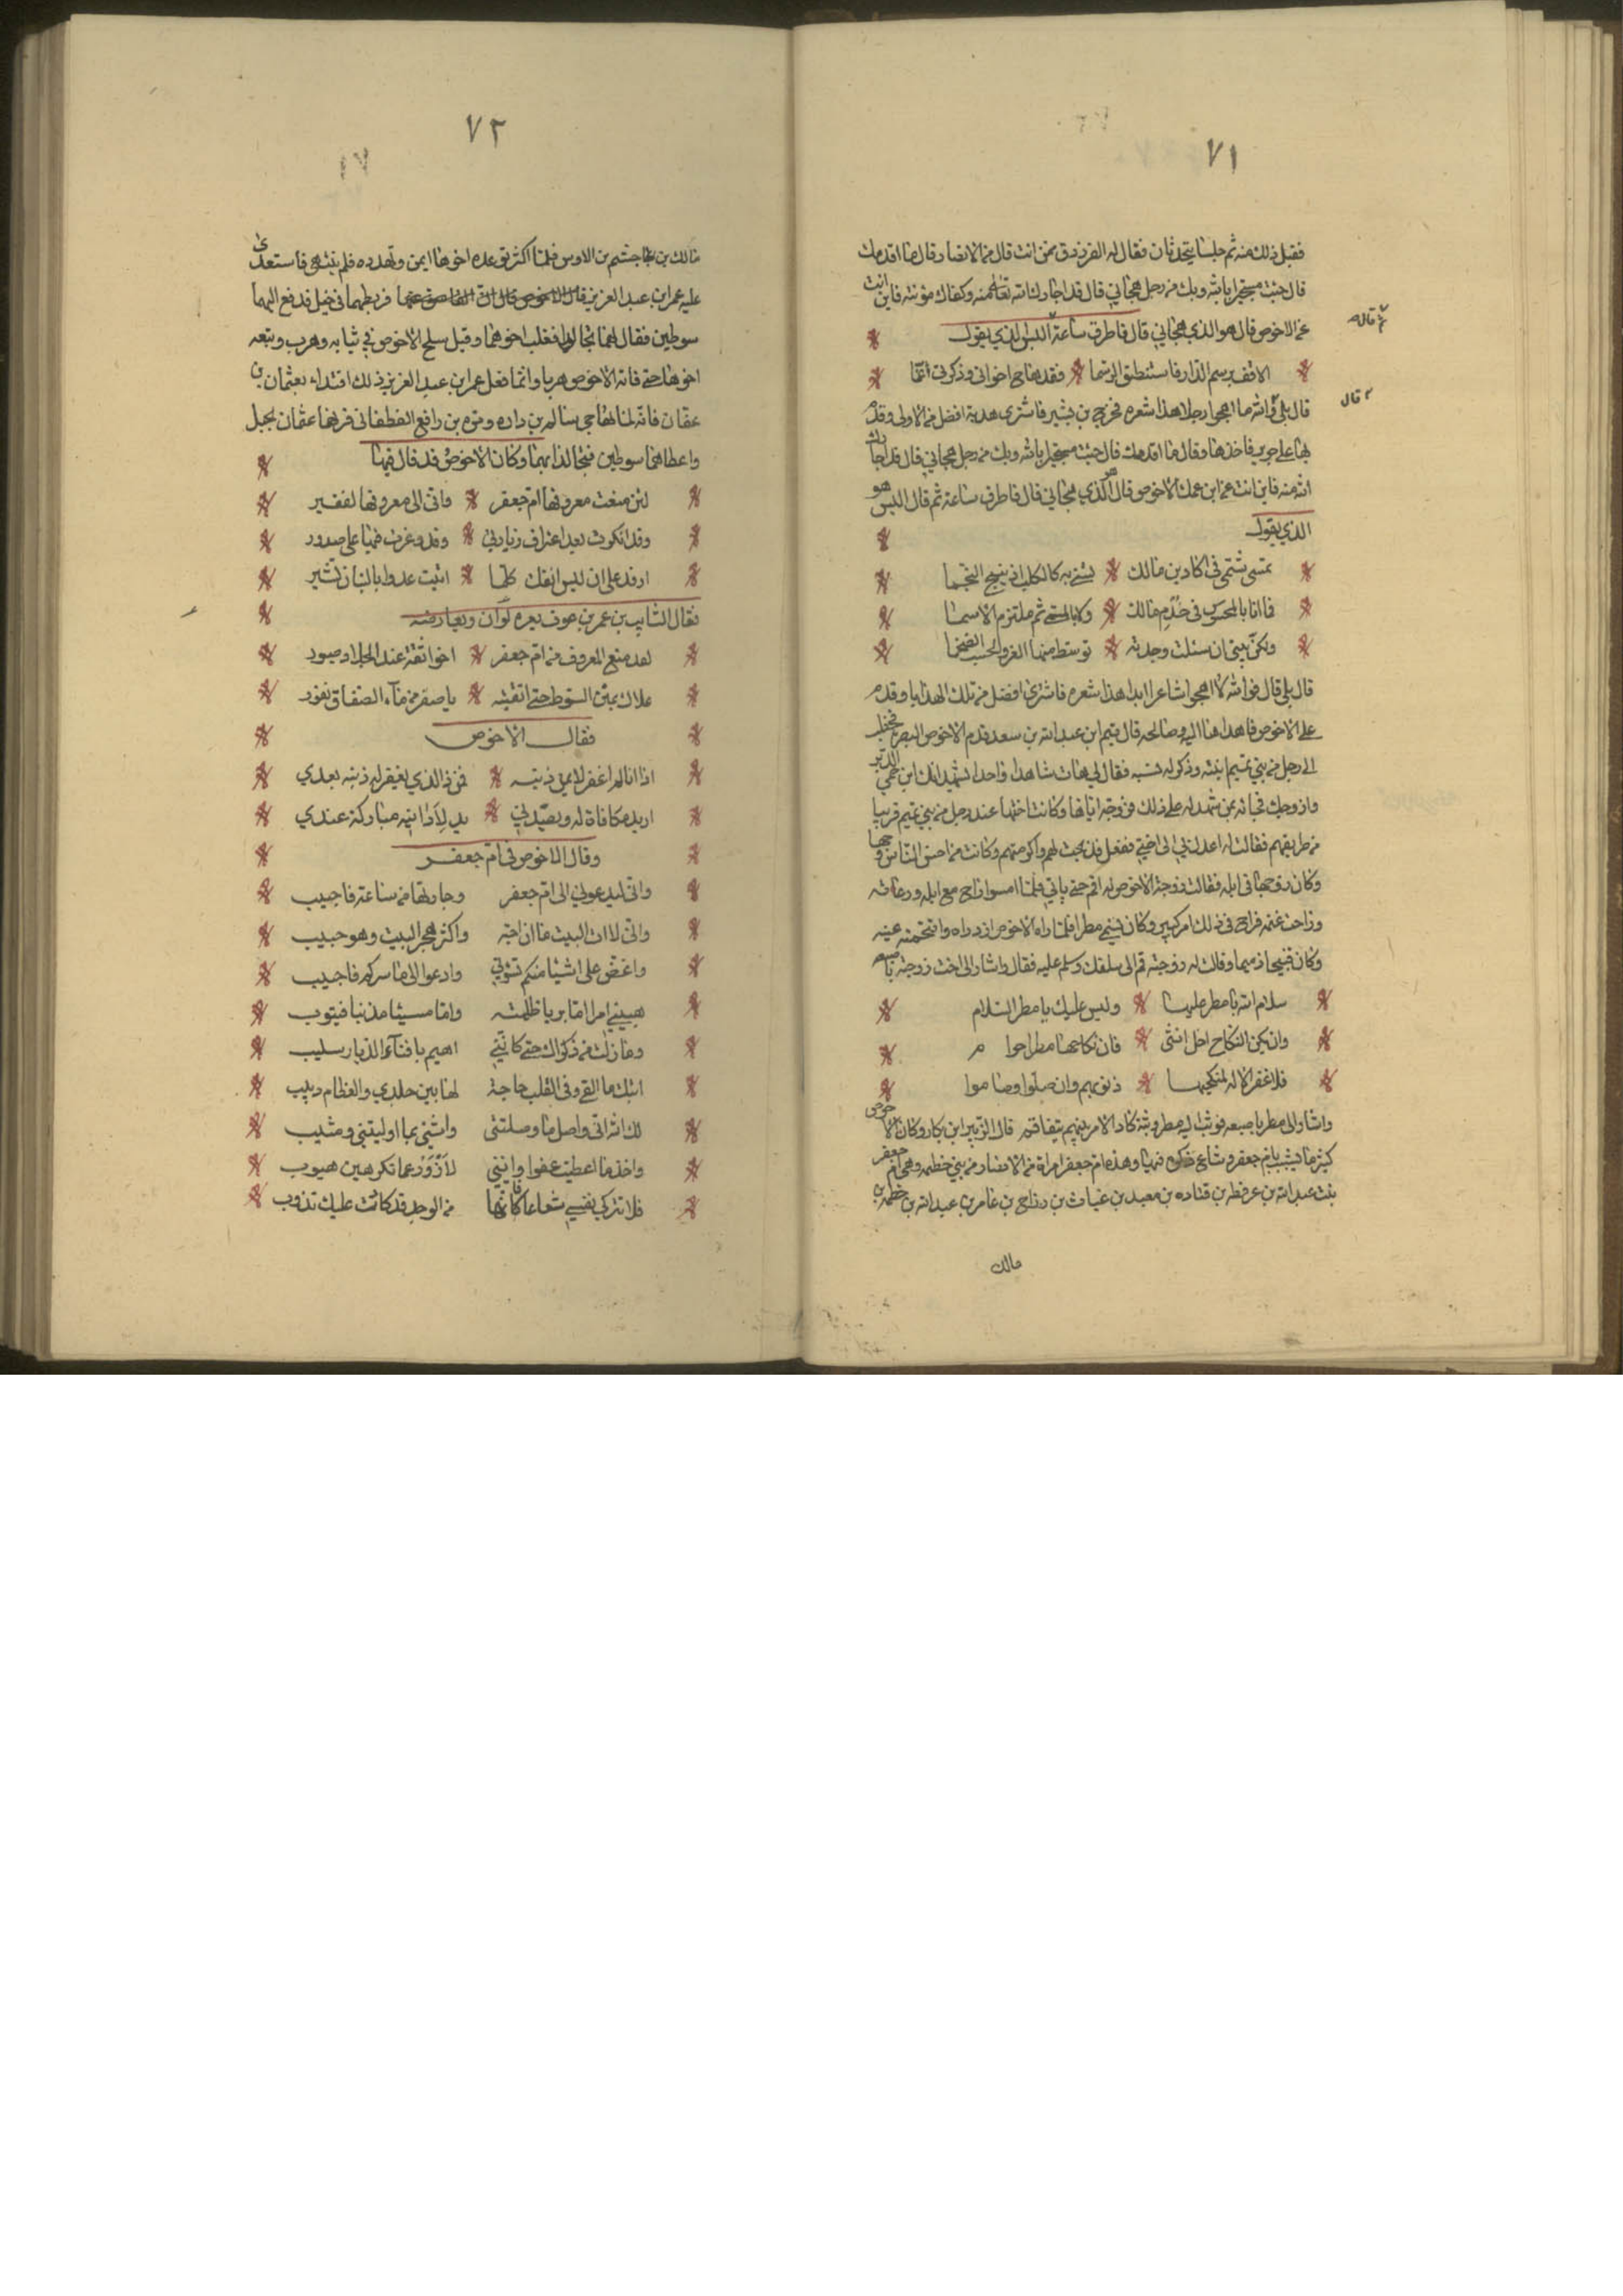 ٧١
فقبل ذلك منه ثم جلسا يتحدثان فقال له الفرزدق ممن انت قال من الانصار قال ما اقدمك
قال جئت مستجيرا بالله وبك من رجل هجاني قال قد اجارك الله تعالى منه وكفاك مؤنته فاين انت
عن الاخوص قال هو الذي هجاني قال فاطرق ساعة اليس الذي يقول
ثم قال
الا قف برسم الدار فاستنطق الرسما فقد هاج احزاني وذكرني
قال بلى والله ما اهجوا رجلا هذا شعره فخرج بن بشير فاشترى هدية افضل من الاولى وقدم
قال
بها على جرير فاخذها وقال ما اقدمك قال جئت مستجيرا بالله وبك من رجل هجاني قال قد اجارك
الله منه فاين انت عن ابن عمك الاخوص قال هو الذي هجاني قال فاطرق ساعة ثم قال اليس هو
الذي يقول
تمشى بشتمى في اكاديس مالك يشنع به كالكلب اذ ينبح النجما
فما انا بالمخسوس في جذم مالك ولا بالمسمى ثم ملتزم الاسما
ولكن بيتي ان سئلت وجدته توسط منها العز والحسب الضخما
قال بلى قال فوالله لا اهجوا شاعرا ابدا هذا شعره فاشترى افضل من تلك الهدايا وقدم
على الاخوص فاهداها اليه وصالحه قال قيم ابن عبدالله بن سعد قدم الاخوص البصره فخطب
الى رجل من بني تميم ابنته وذكر له نسبه فقال لي هات شاهدا واحدا يشهد انك ابن حمي الدبر
وازوجك فجائه بمن شهد له على ذلك فزوجه اياها وكانت اختها عند رجل من بني تميم قريبا
من طريقهم فقالت له اعدل بي الى اختي ففعل فذبحت لهم واكرمتهم وكانت من احسن الناس وجها
وكان زوجها في ابله فقالت زوجة الاخوص له اقم حتى ياتي فلما امسوا راح مع ابله ورعائه
وراحت غنمه فراح في ذلك امر كبير وكان يسمى مطرا فلما راه الاخوص ازدراه واقتحمته عينه
وكان قبيحا ذميما وقالت له زوجته قم الى سلفك وسلم عليه فقال واشار الى اخت زوجته باصبعه
سلام الله يا مطر عليها وليس عليك يا مطر السلام
وان يكن النكاح احل انثى فان نكاحها مطرا حرام
فلا غفر الاله لمنكحيها ذنوبهم وان صلوا وصاموا
واشار الى مطر باصبعه فوثب اليه مطر وبنوه كاد الامر بينهم يتفاقم قال الزبير ابن بكار وكان الاخوص
كثير ما يشبب بام جعفر وشاع ذكره فيها وهذه ام جعفر امراة من الانصار من بني خطمه وهي ام جعفر
بنت عبدالله بن عرفطه بن قتاده بن معبد بن غياث بن رزاح بن عامر بن عبدالله بن خطمه بن
مالك
٧٢
مالك بن جشم بن الاوس فلما اكثر توعده اخوها ايمن وتهدده فلم ينته فاستعدى
عليه عمر ابن عبد العزيز فربطهما في حبل فدفع اليهما
سوطين فقال لهما تجالدا فغلب اخوها وقيل سلح الاخوص في ثيابه وهرب وتبعه
اخوها حتى فاته الاخوص هربا وانما فعل عمر ابن عبد العزيز ذلك اقتداء بعثمان بن
عفان فانه لما تهاجى سالم بن داره ومره بن رافع الغطفاني قرنهما عفان بحبل
واعطاهما سوطين فتجالدا بهما وكان الاخوص قد قال فيها
لئن منعت معروفها ام جعفر واني الى معروفها لفقير
وقد انكرت بعد اعتراف زيارتي وقد وغرت فيها على صدور
ازور على ان ليس انفك كلما اتيت عدوا بالبنان تشير
فقال السايب بن عمر بن عوف
لقد منع المعروف من ام جعفر اخو ثقة عند الجلاد صبور
علاك بمتن السوط حتى اتقيته باصفر من ماء الصفاق يفور
فقال الاخوص
اذا انا لم اغفر لايمن ذنبه فمن ذا الذي يغفر له ذنبه بعدي
اريد مكافاة له ويصدني يد لاداينه مباركة عندي
وقال الاخوص في ام جعفر
واني ليدعوني الى ام جعفر وجاراتها من ساعة فاجيب
واني لاات البيت ما ان احبه واكثر هجر البيت وهو حبيب
واغضى على اشيا منكم تسؤني وادعوا الى ما سركم فاجيب
هبيني امرا اما بريا ظلمته واما مسيئا مذنبا فيتوب
وما زلت من ذكراك حتى كانني اميم بافناء الديار سليب
ابثك ما القى وفي القلب حاجة لها بين جلدي والعظام دبيب
لك الله اني واصل ما وصلتني واثني بما اوليتني ومثيب
واخذ ما اعطيت عفوا وانني لازور عما تكرهين هيوب
فلا تتركي نفسي شعاعا فانها من الوجد قد كانت عليك تذوب